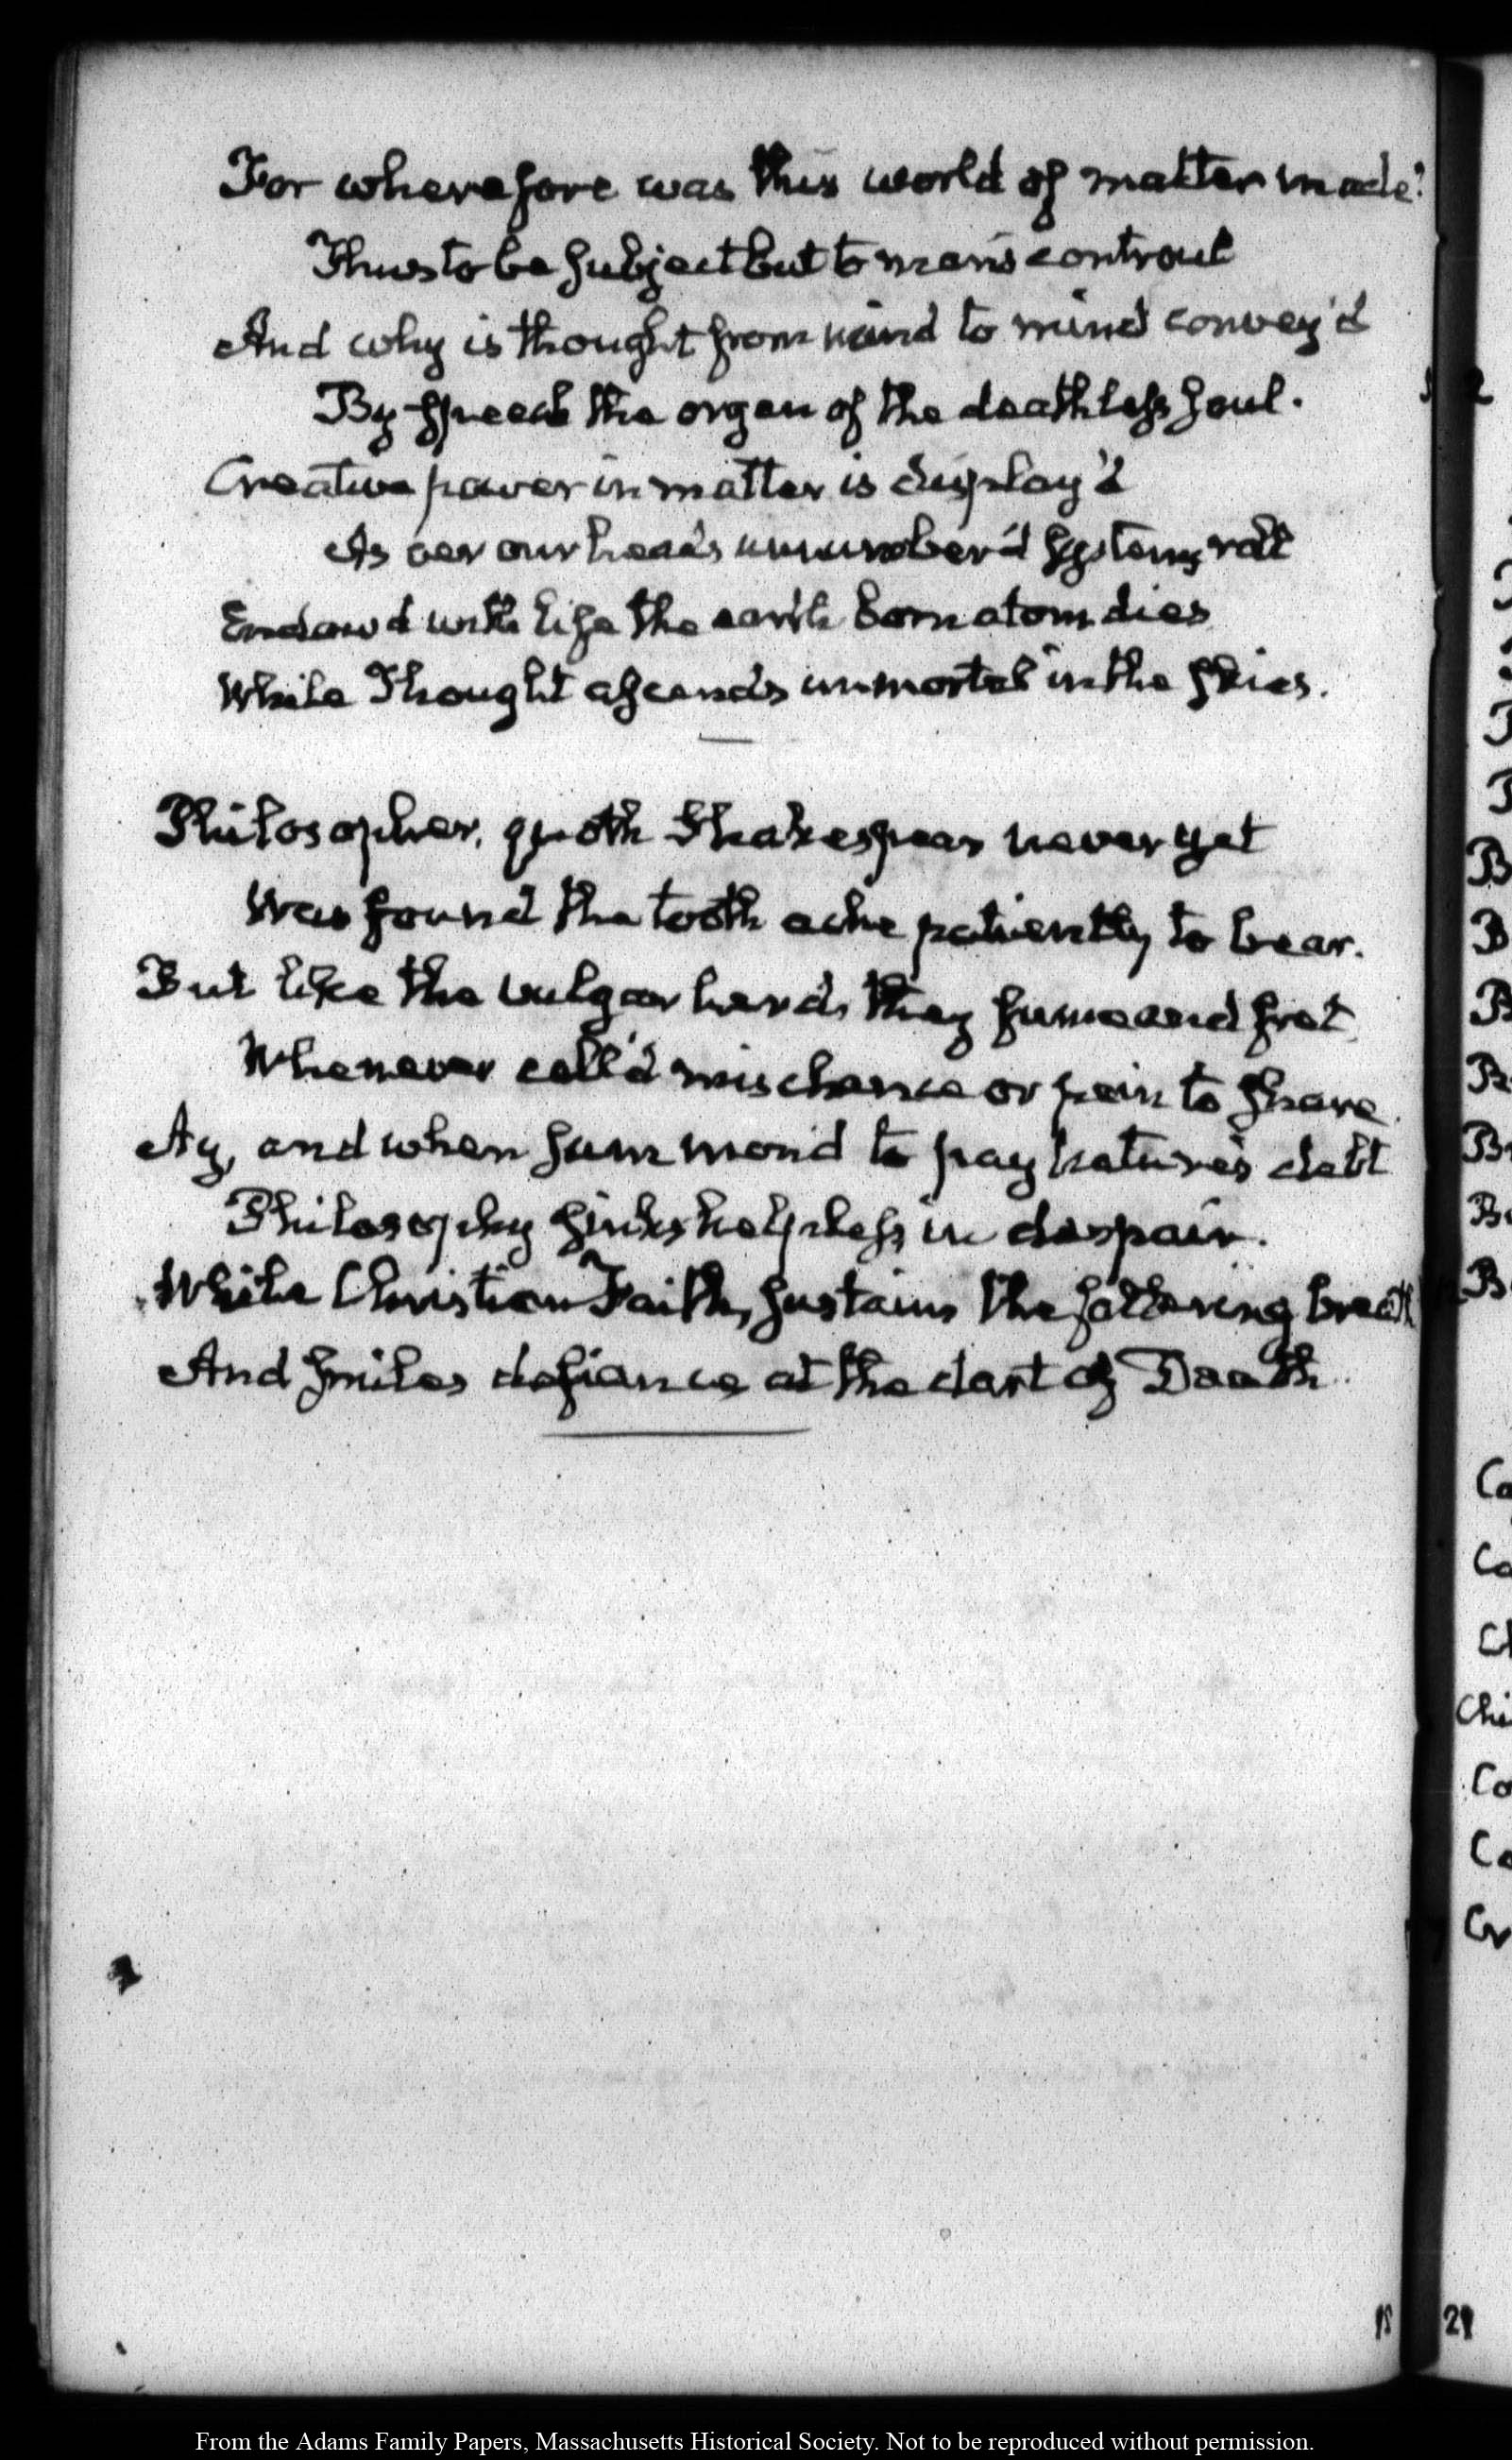 For wherefore was this world of matter made?
Thus to be subject but to man's controul
And why is thought from mind to mind convey'd
By speech the organ of the deathless soul.
Creative power in matter is display'd
As oer our heads unnumber'd systems roll
Endow'd with life the earth born atom dies
While Thought ascends immortal in the skies.
Philosopher, quoth Shakespear never yet
Was found the tooth ache patiently to bear.
But like the vulgar herds they fume and fret
Whenever call'd mischance or pain to share
Ay, and when summon'd to pay nature's debt
Philosophy sinks helpless in despair.
While Christian Faith, sustains the faltering breath
And smiles defiance at the dart of Death.
2
B
B
B
B
B
B
B
Co
Co
Cl
Chi
Co
Co
Cr
21
From the Adams Family Papers, Massachusetts Historical Society. Not to be reproduced without permission.